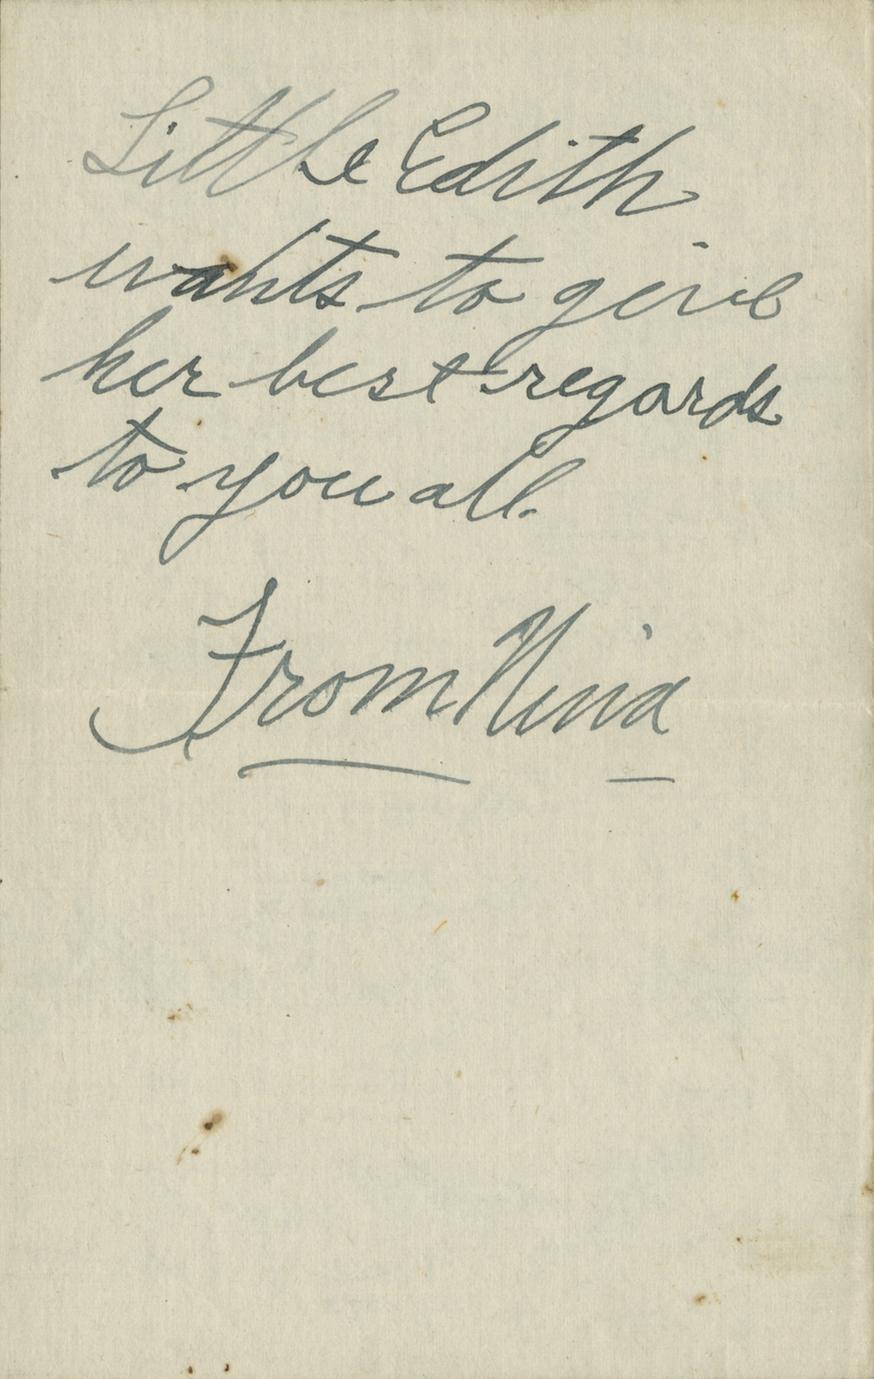 Little Edith
wants to give
her best regards
to you all.
From Nina